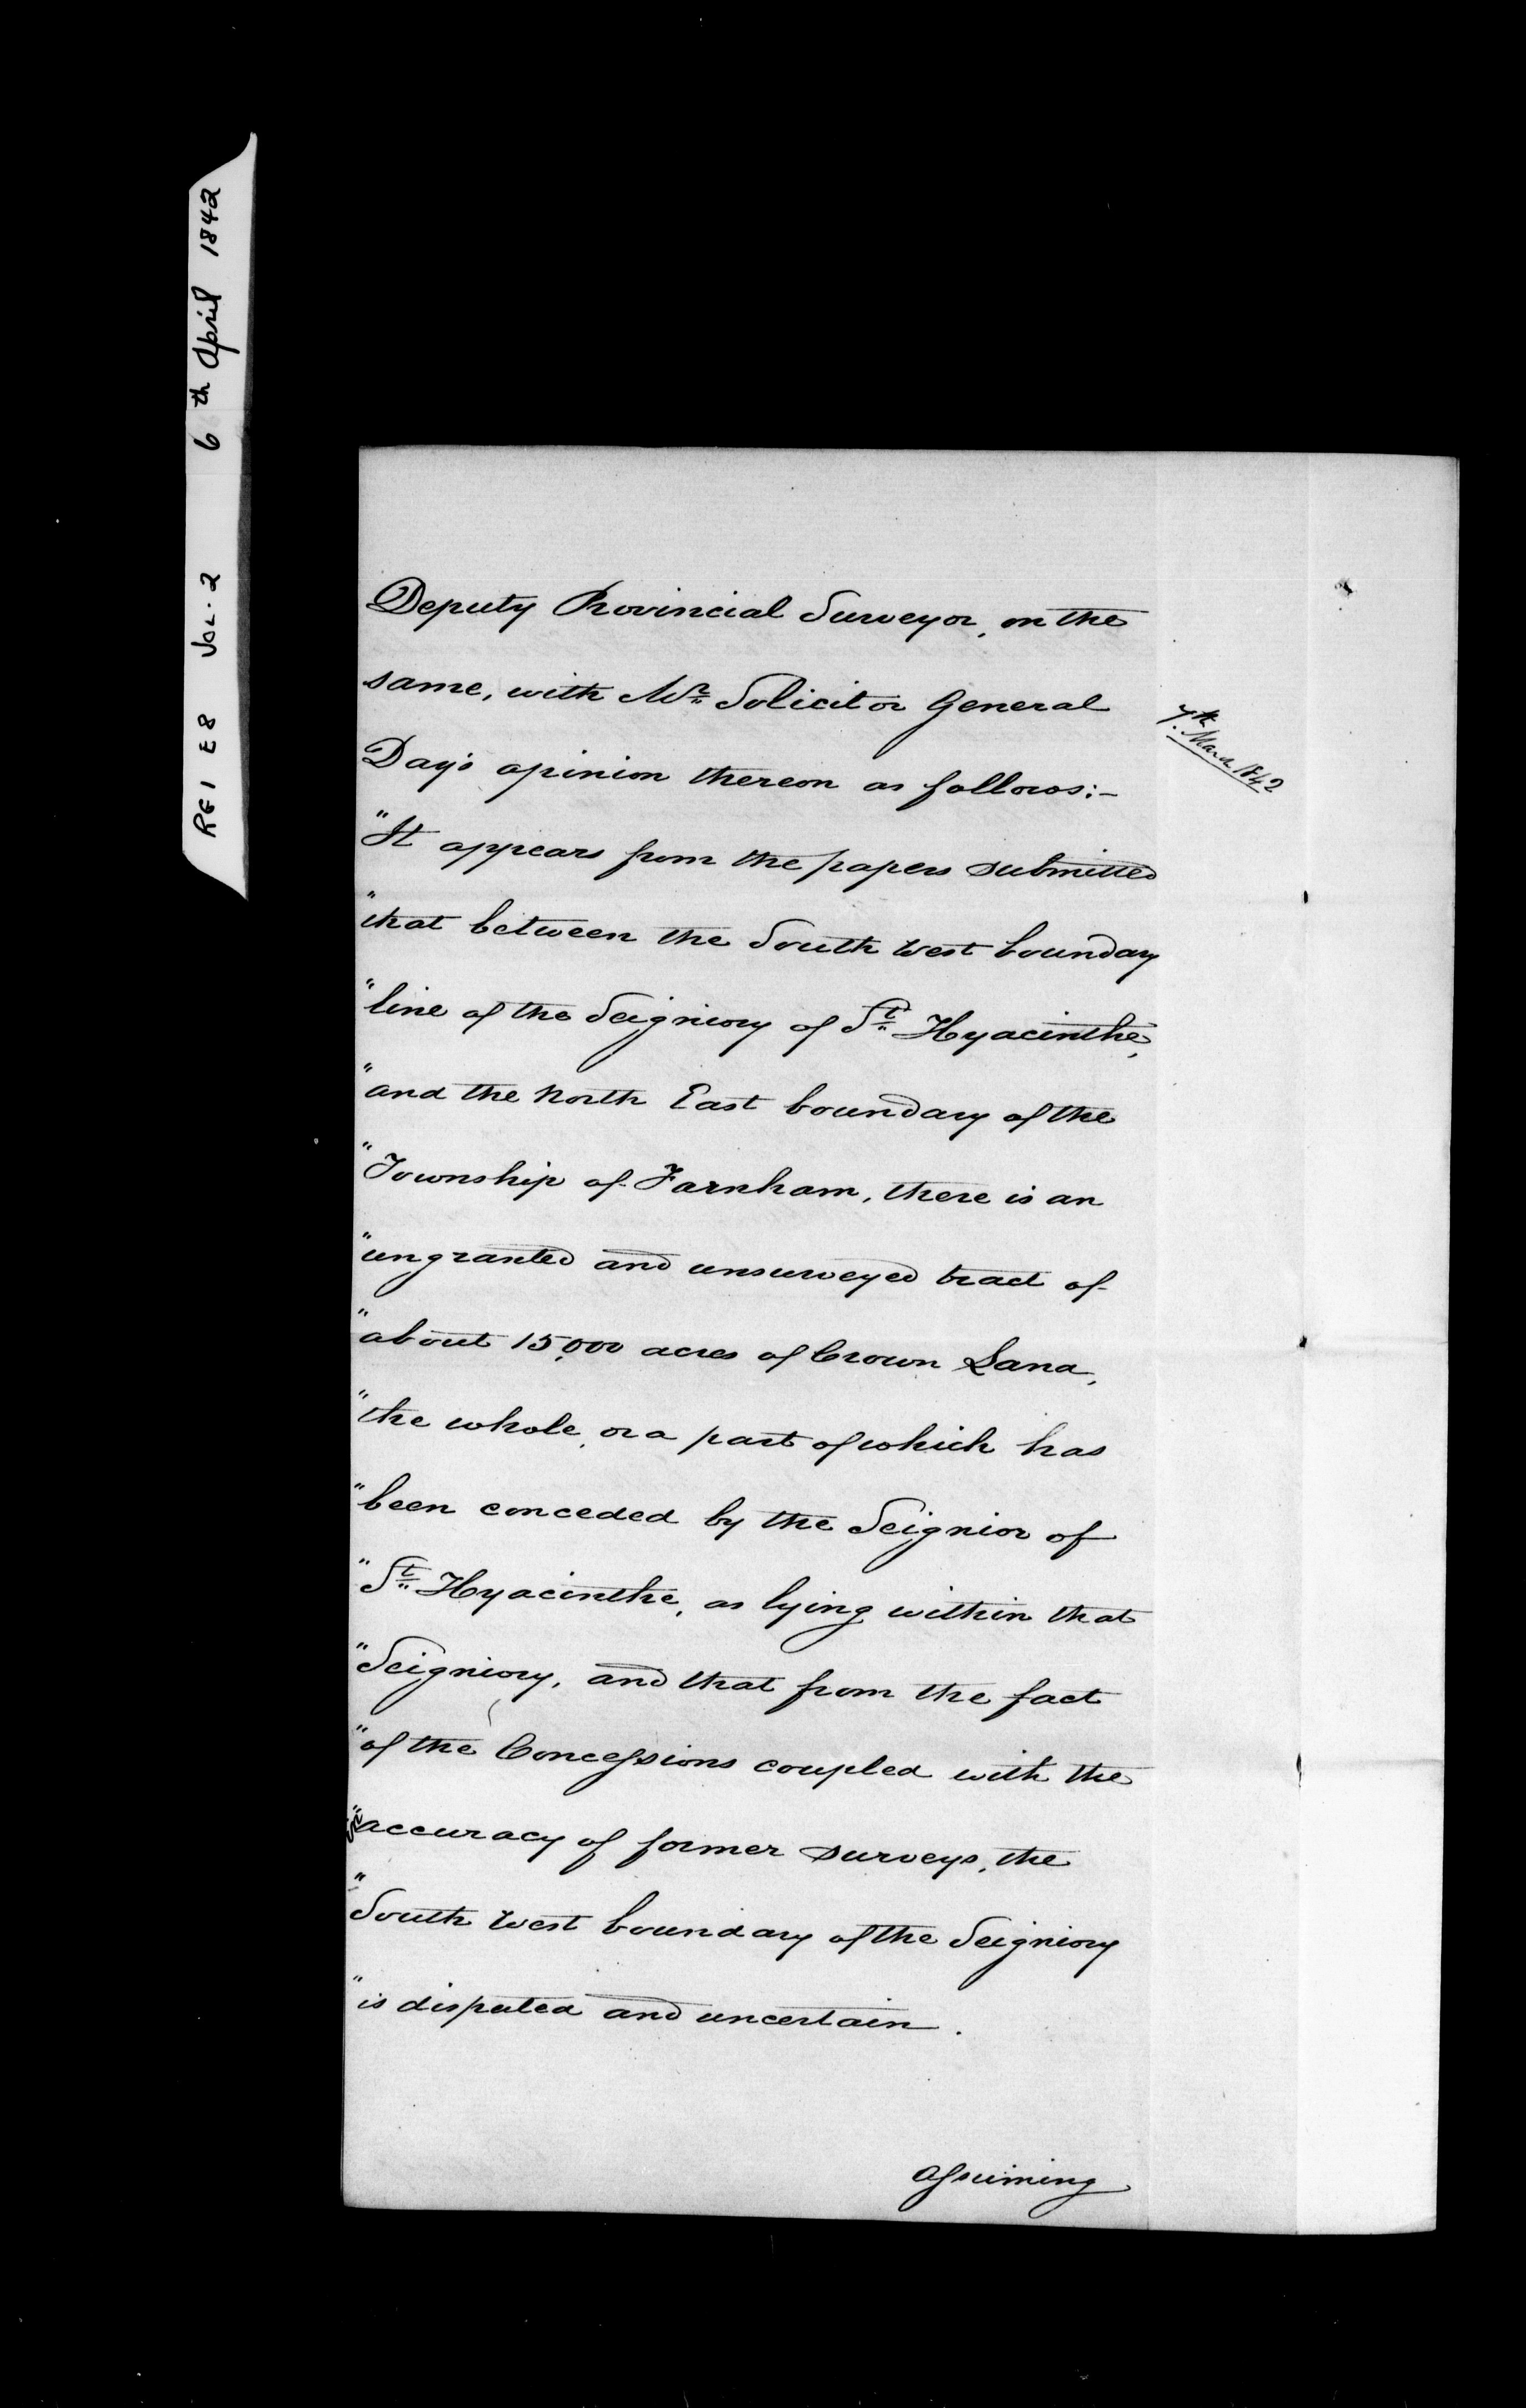 RG1 E8 Vol. 2 6th April 1842
Deputy Provincial Surveyor, on the
same, with Mr. Solicitor General
7th March 1842
Day's opinion thereon as follows:-
"It appears from the papers submitted
"that between the South West boundary
"line of the Seigniory of St. Hyacinthe,
"and the North East boundary of the
"Township of Farnham, there is an
"ungranted and unsurveyed tract of
"about 15,000 acres of Crown Land,
"the whole, or a part of which has
"been conceded by the Seignior of
"St. Hyacinthe, as lying within that
"Seigniory, and that from the fact
"of the Concessions coupled with the
"accuracy of former surveys, the
"South West boundary of the Seigniory
"is disputed and uncertain.
Assuming